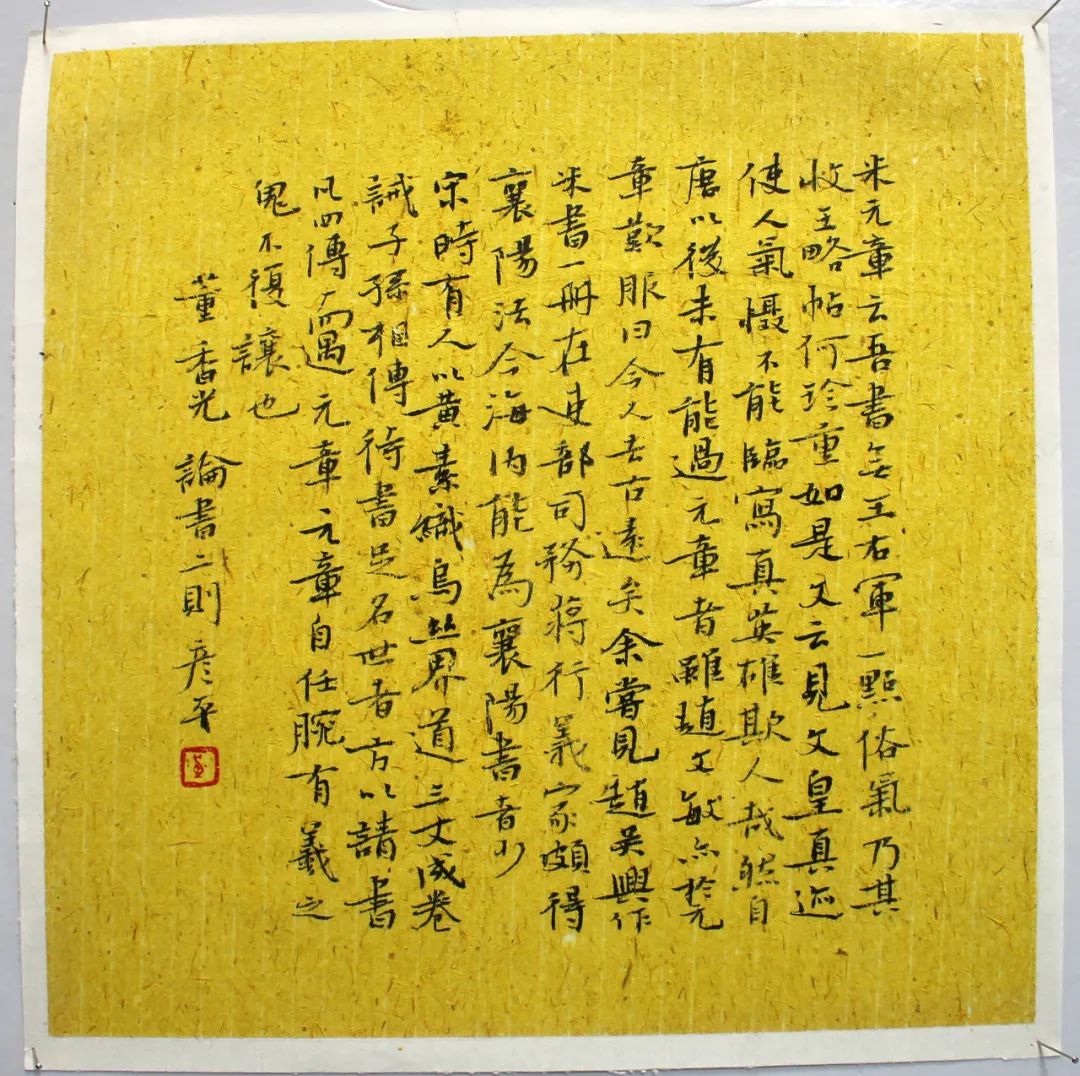 米元章云吾書無王右軍一點俗氣乃其
收王略帖何珍重如是又云見文皇真迹
使人氣懾不能臨寫真英雄欺人哉然自
唐以後未有能過元章者雖趙文敏亦於元
章歎服曰今人去古遠矣余嘗見趙吳興作
米書一冊在吏部司務蔣行義家頗得
襄陽法今海內能為襄陽書者少
宋時有人以黃素織烏絲界道三丈成卷
誡子孫相傳待書足名世者方以請書
凡四傳而遇元章元章自任腕有羲之
鬼不復讓也
董香光論書二則彥平